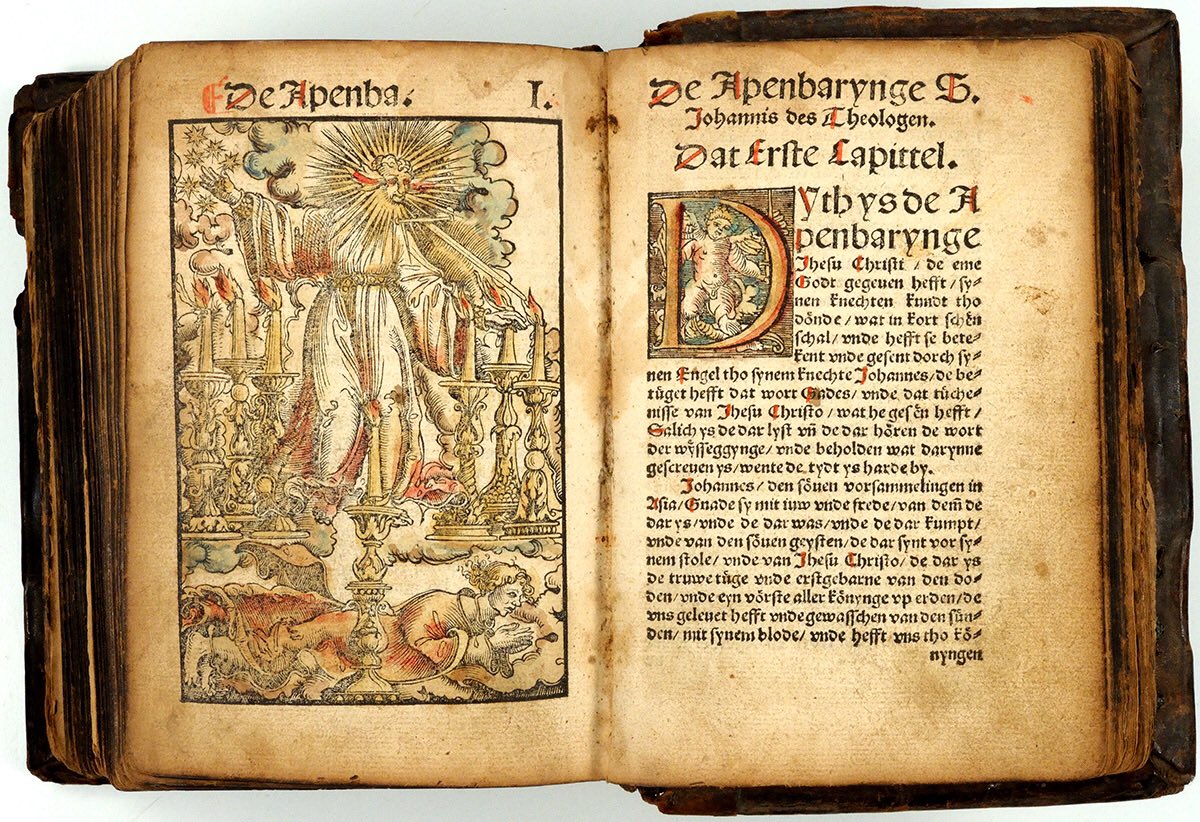 De Apenba.
I.
De Apenbarynge S.
Johannis des Theologen.
Dat Erste Capittel.
Dyth ys de A
penbarynge
Jhesu Christi / de eme
Godt gegeuen hefft / sy⸗
nen knechten kundt tho
dönde / wat in kort schen
schal / vnde hefft se bete⸗
kent vnde gesent dorch sy⸗
nen Engel tho synem knechte Johannes / de be⸗
tüget hefft dat wort Gades / vnde dat tüche⸗
nisse van Jhesu Christo / wat he gesen hefft /
Salich ys de dar lyst vn̄ de dar hören de wort
der wysseggynge / vnde beholden wat darynne
gescreuen ys / wente de tydt ys harde by.
Johannes / den söuen vorsammelingen in
Asia / Gnade sy mit iuw vnde frede / van dem̄ de
dar ys / vnde de dar was / vnde de dar kumpt /
vnde van den söuen geysten / de dar synt vor sy⸗
nem stole / vnde van Jhesu Christo / de dar ys
de truwe tüge vnde erstgebarne van den do⸗
den / vnde eyn vörste aller könynge vp erden / de
vns geleuet hefft vnde gewasschen van den sün⸗
den / mit synem blode / vnde hefft vns tho kö⸗
nyngen